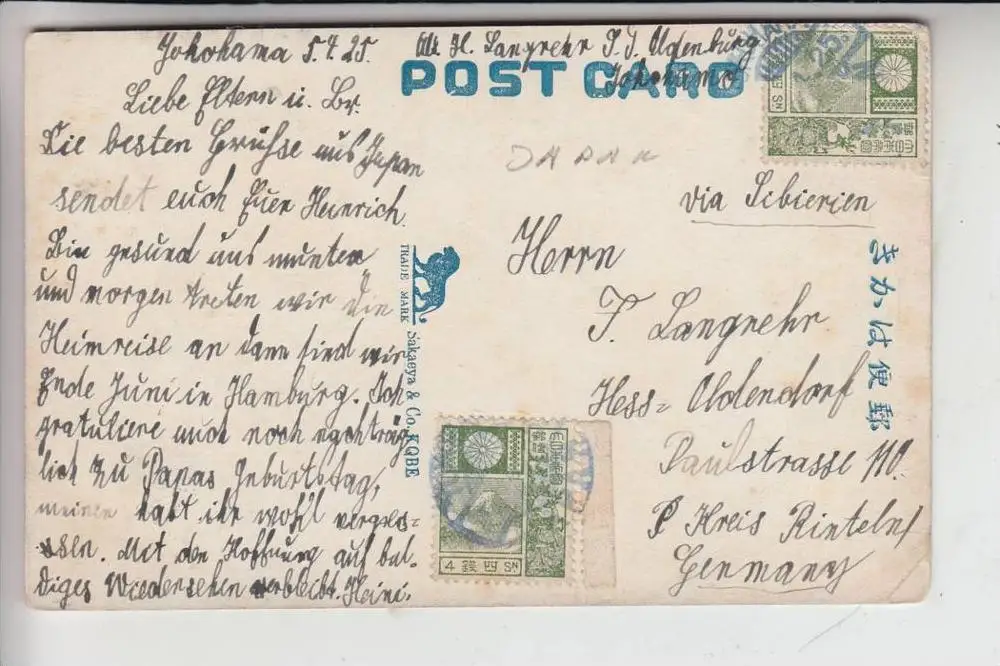 Yokohama 5.4.25.
Liebe Eltern u. Br.
Die besten Grühse aus Japan
sendet euch Euer Heinrich.
Bin gesund und munter
und morgen treten wir die
Heimreise an dann sind wir
Ende Juni in Hamburg. Ich
gratuliere auch noch nachträg
lich zu Papas Geburtstag,
meinen habt ihr wohl verges=
seln. Mit der Hoffnung auf bal-
diges Wiedersehen verbleibt. Heini.
H. Langrehr D. Oldenburg
Yokohama
POST CARD
JAPAN
via Sibierien
Herrn
F. Langrehr
Hess= Oldendorf
Paulstrasse 110.
Kreis Rinteln
Germany
きかは便郵
TRADE MARK
Sakaeya & Co. KOBE
大日本帝國郵便
SN
大日本帝國郵便
4 錢四 SN